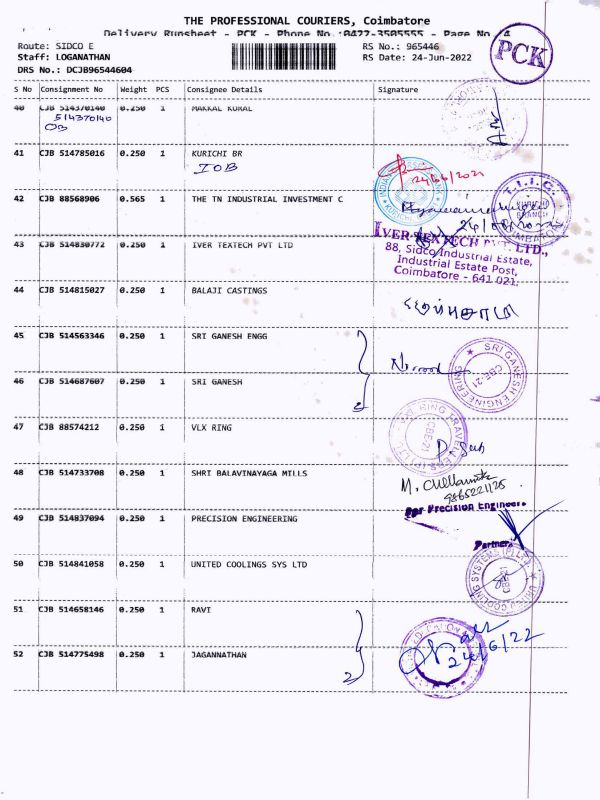 THE PROFESSIONAL COURIERS, Coimbatore
Delivery Runsheet - PCK - Phone No.:0422-3505555 - Page No. 4
PCK
Route: SIDCO E RS No.: 965446
Staff: LOGANATHAN RS Date: 24-Jun-2022
DRS No.: DCJB96544604
S No Consignment No Weight PCS Consignee Details Signature
40 CJB 514370140 0.250 1 MAKKAL KURAL
514370140
OB
41 CJB 514785016 0.250 1 KURICHI BR
IOB
24/06/2021
42 CJB 88568906 0.565 1 THE TN INDUSTRIAL INVESTMENT C
T.I.I.C.
KURICHI
BRANCH
COIMBATORE
43 CJB 514830772 0.250 1 IVER TEXTECH PVT LTD
IVER TEXTECH PVT. LTD.,
88, Sidco Industrial Estate,
Industrial Estate Post,
Coimbatore - 641 021.
44 CJB 514815027 0.250 1 BALAJI CASTINGS
45 CJB 514563346 0.250 1 SRI GANESH ENGG
SRI GANESH ENGINEERING
CBE-21
46 CJB 514687607 0.250 1 SRI GANESH
47 CJB 88574212 0.250 1 VLX RING
CBE-21
48 CJB 514733708 0.250 1 SHRI BALAVINAYAGA MILLS
49 CJB 514837094 0.250 1 PRECISION ENGINEERING
For Precision Engineers
Partner
50 CJB 514841058 0.250 1 UNITED COOLINGS SYS LTD
UNITED COOLING SYSTEMS (P) LTD.
51 CJB 514658146 0.250 1 RAVI
52 CJB 514775498 0.250 1 JAGANNATHAN
24/6/22